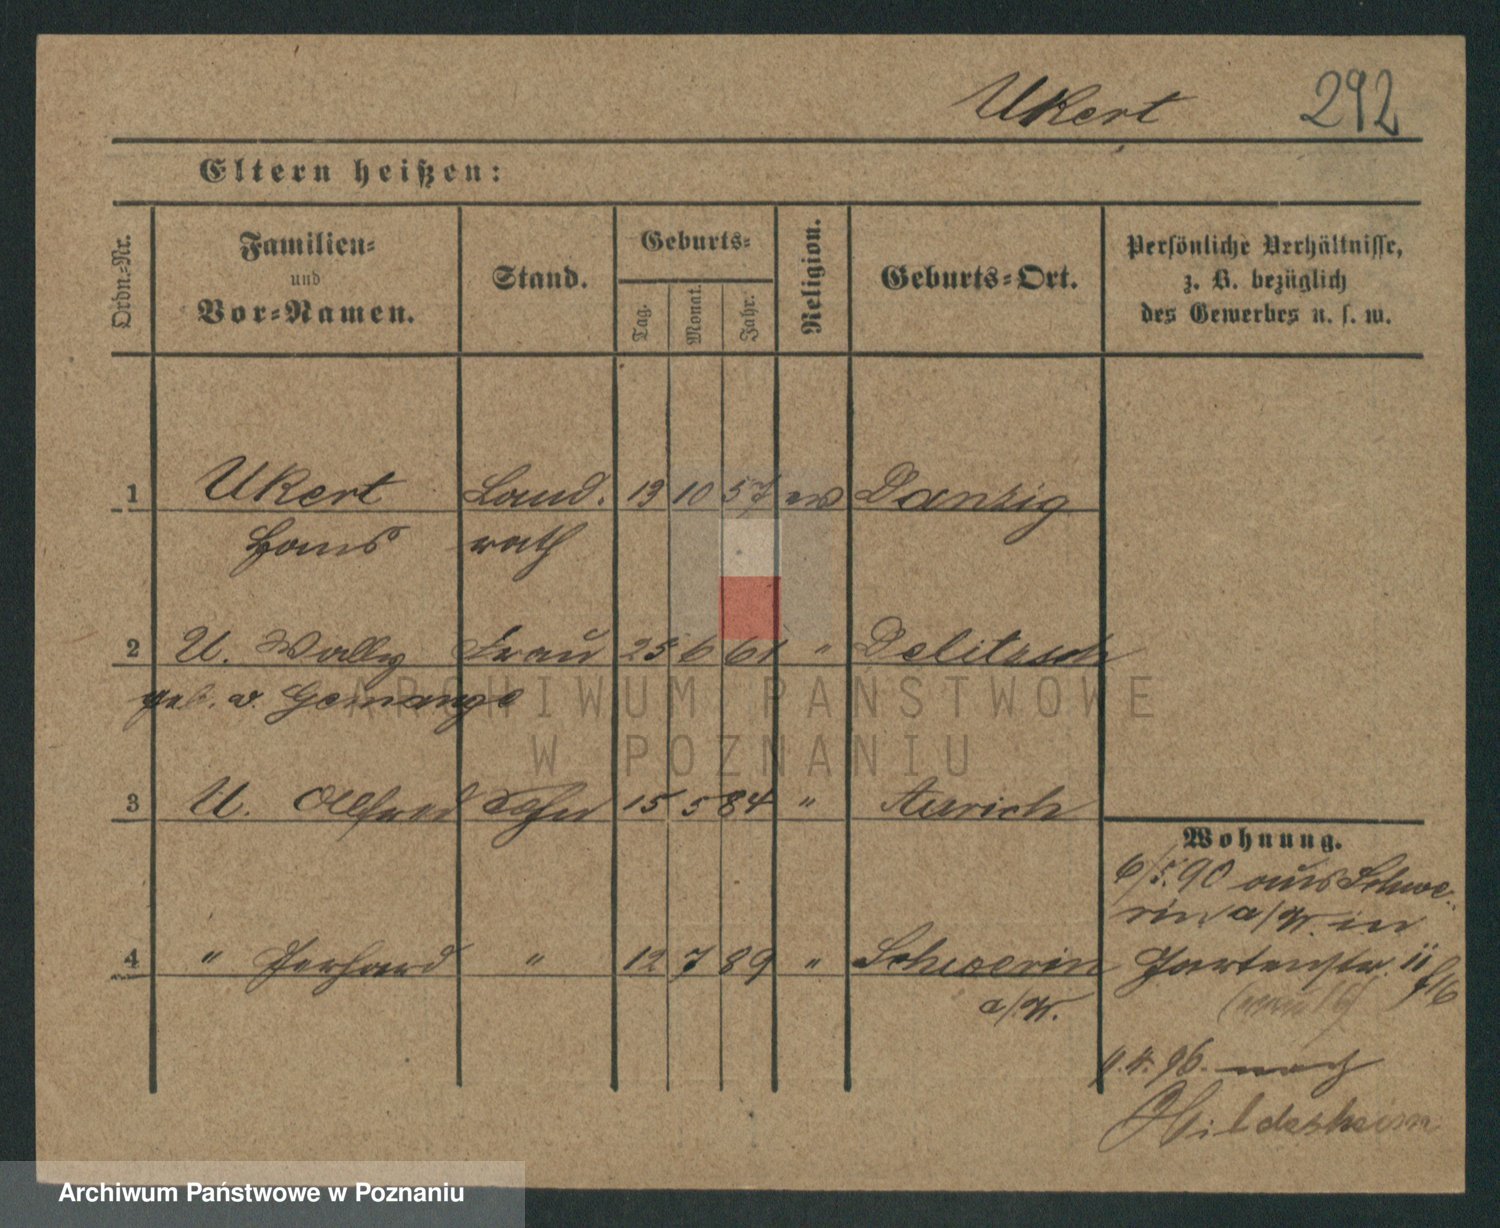 Ukert 292
Eltern heißen:
Ordn.-Nr.
Familien-
und
Vor-Namen.
Stand.
Geburts-
Tag.
Monat.
Jahr.
Religion.
Geburts-Ort.
Persönliche Verhältnisse,
z. B. bezüglich
des Gewerbes u. s. w.
1 Ukert Land. 19 10 57 ev Danzig
Hans rath
2 U. Wally Frau 25 6 61 " Delitzsch
geb. v.
3 U. Allfred Sohn 15 5 84 " Aurich
4 " Gerhard " 12 7 89 " Schwerin
a/W.
Wohnung.
6/5. 90 aus Schwe-
rin a/W. in
Gartenstr. 11
11. 4. 96. nach
Hildesheim
ARCHIWUM PAŃSTWOWE
W POZNANIU
Archiwum Państwowe w Poznaniu